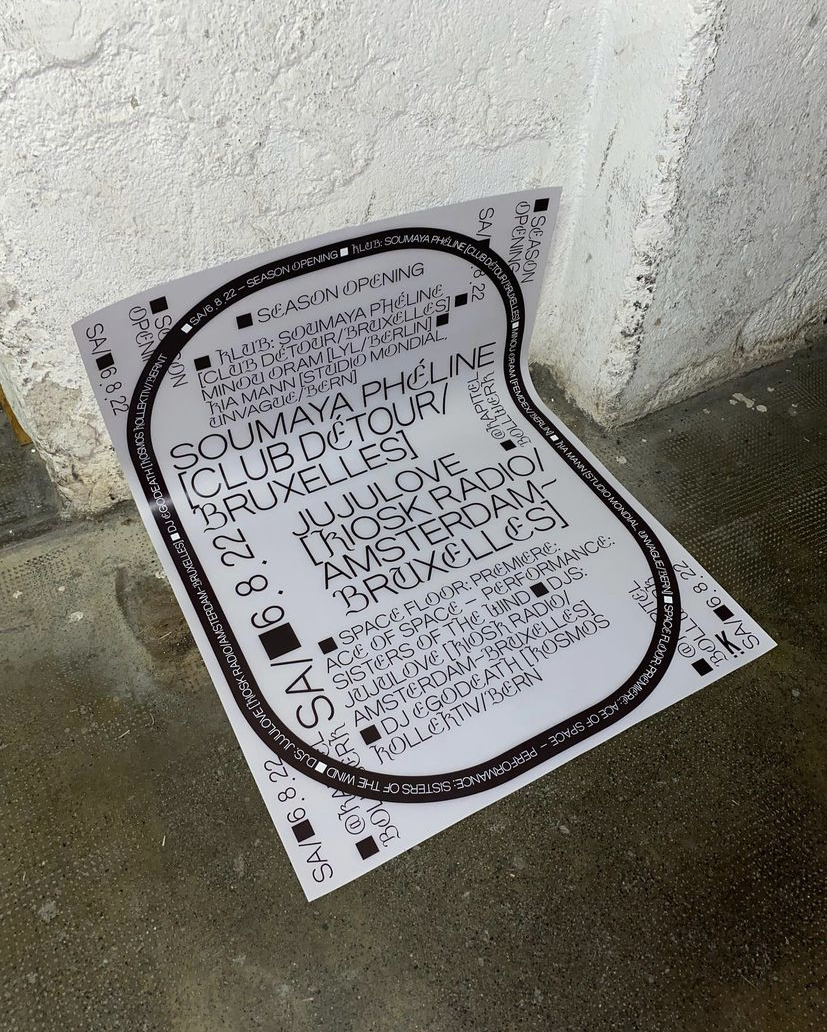 SEASON
OPENING
SA/■6.8.22
SEASON
OPENING
SA/■6.8.22
■ SA/6.8.22 – SEASON OPENING ■ KLUB: SOUMAYA PHÉLINE [CLUB DÉTOUR/BRUXELLES] ■ MINOU ORAM [FEMDEX/BERLIN] ■ KIA MANN [STUDIO MONDIAL, UNVAGUE/BERN] ■ SPACE FLOOR: PREMIERE: ACE OF SPACE – PERFORMANCE: SISTERS OF THE WIND ■ DJS: JUJULOVE [KIOSK RADIO/AMSTERDAM-BRUXELLES] ■ DJ EGODEATH [KOSMOS KOLLEKTIV/BERN]
■ SEASON OPENING
■ KLUB: SOUMAYA PHÉLINE
[CLUB DÉTOUR/BRUXELLES] ■
MINOU ORAM [LYL/BERLIN] ■
KIA MANN [STUDIO MONDIAL,
UNVAGUE/BERN]
SOUMAYA PHÉLINE
[CLUB DÉTOUR/
BRUXELLES]
@KAPITEL
BOLLWERK
JUJULOVE
[KIOSK RADIO/
AMSTERDAM-
BRUXELLES]
SA/■6.8.22
■ SPACE FLOOR: PREMIERE:
ACE OF SPACE – PERFORMANCE:
SISTERS OF THE WIND ■ DJS:
JUJULOVE [KIOSK RADIO/
AMSTERDAM-BRUXELLES]
■ DJ EGODEATH [KOSMOS
KOLLEKTIV/BERN
SA/■6.8.22
SA/■6.8.22
B:K